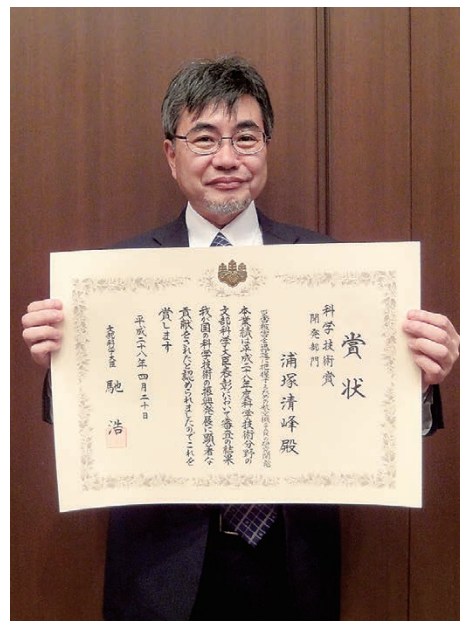 賞状
科学技術賞
開発部門
浦塚清峰殿
本業績は平成二十八年度科学技術分野の
文部科学大臣表彰において審査の結果
我が国の科学技術の振興発展に顕著な
貢献をされたと認められましたのでこれを
賞します
平成二十八年四月二十日
文部科学大臣 馳 浩